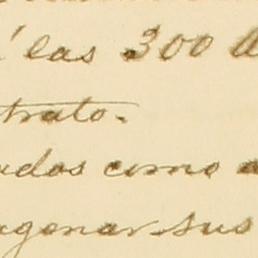 las 300
trato.
ados como
agenar sus